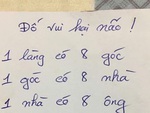 Đố vui hại não !
1 làng có 8 góc
1 góc có 8 nhà
1 nhà có 8 ông